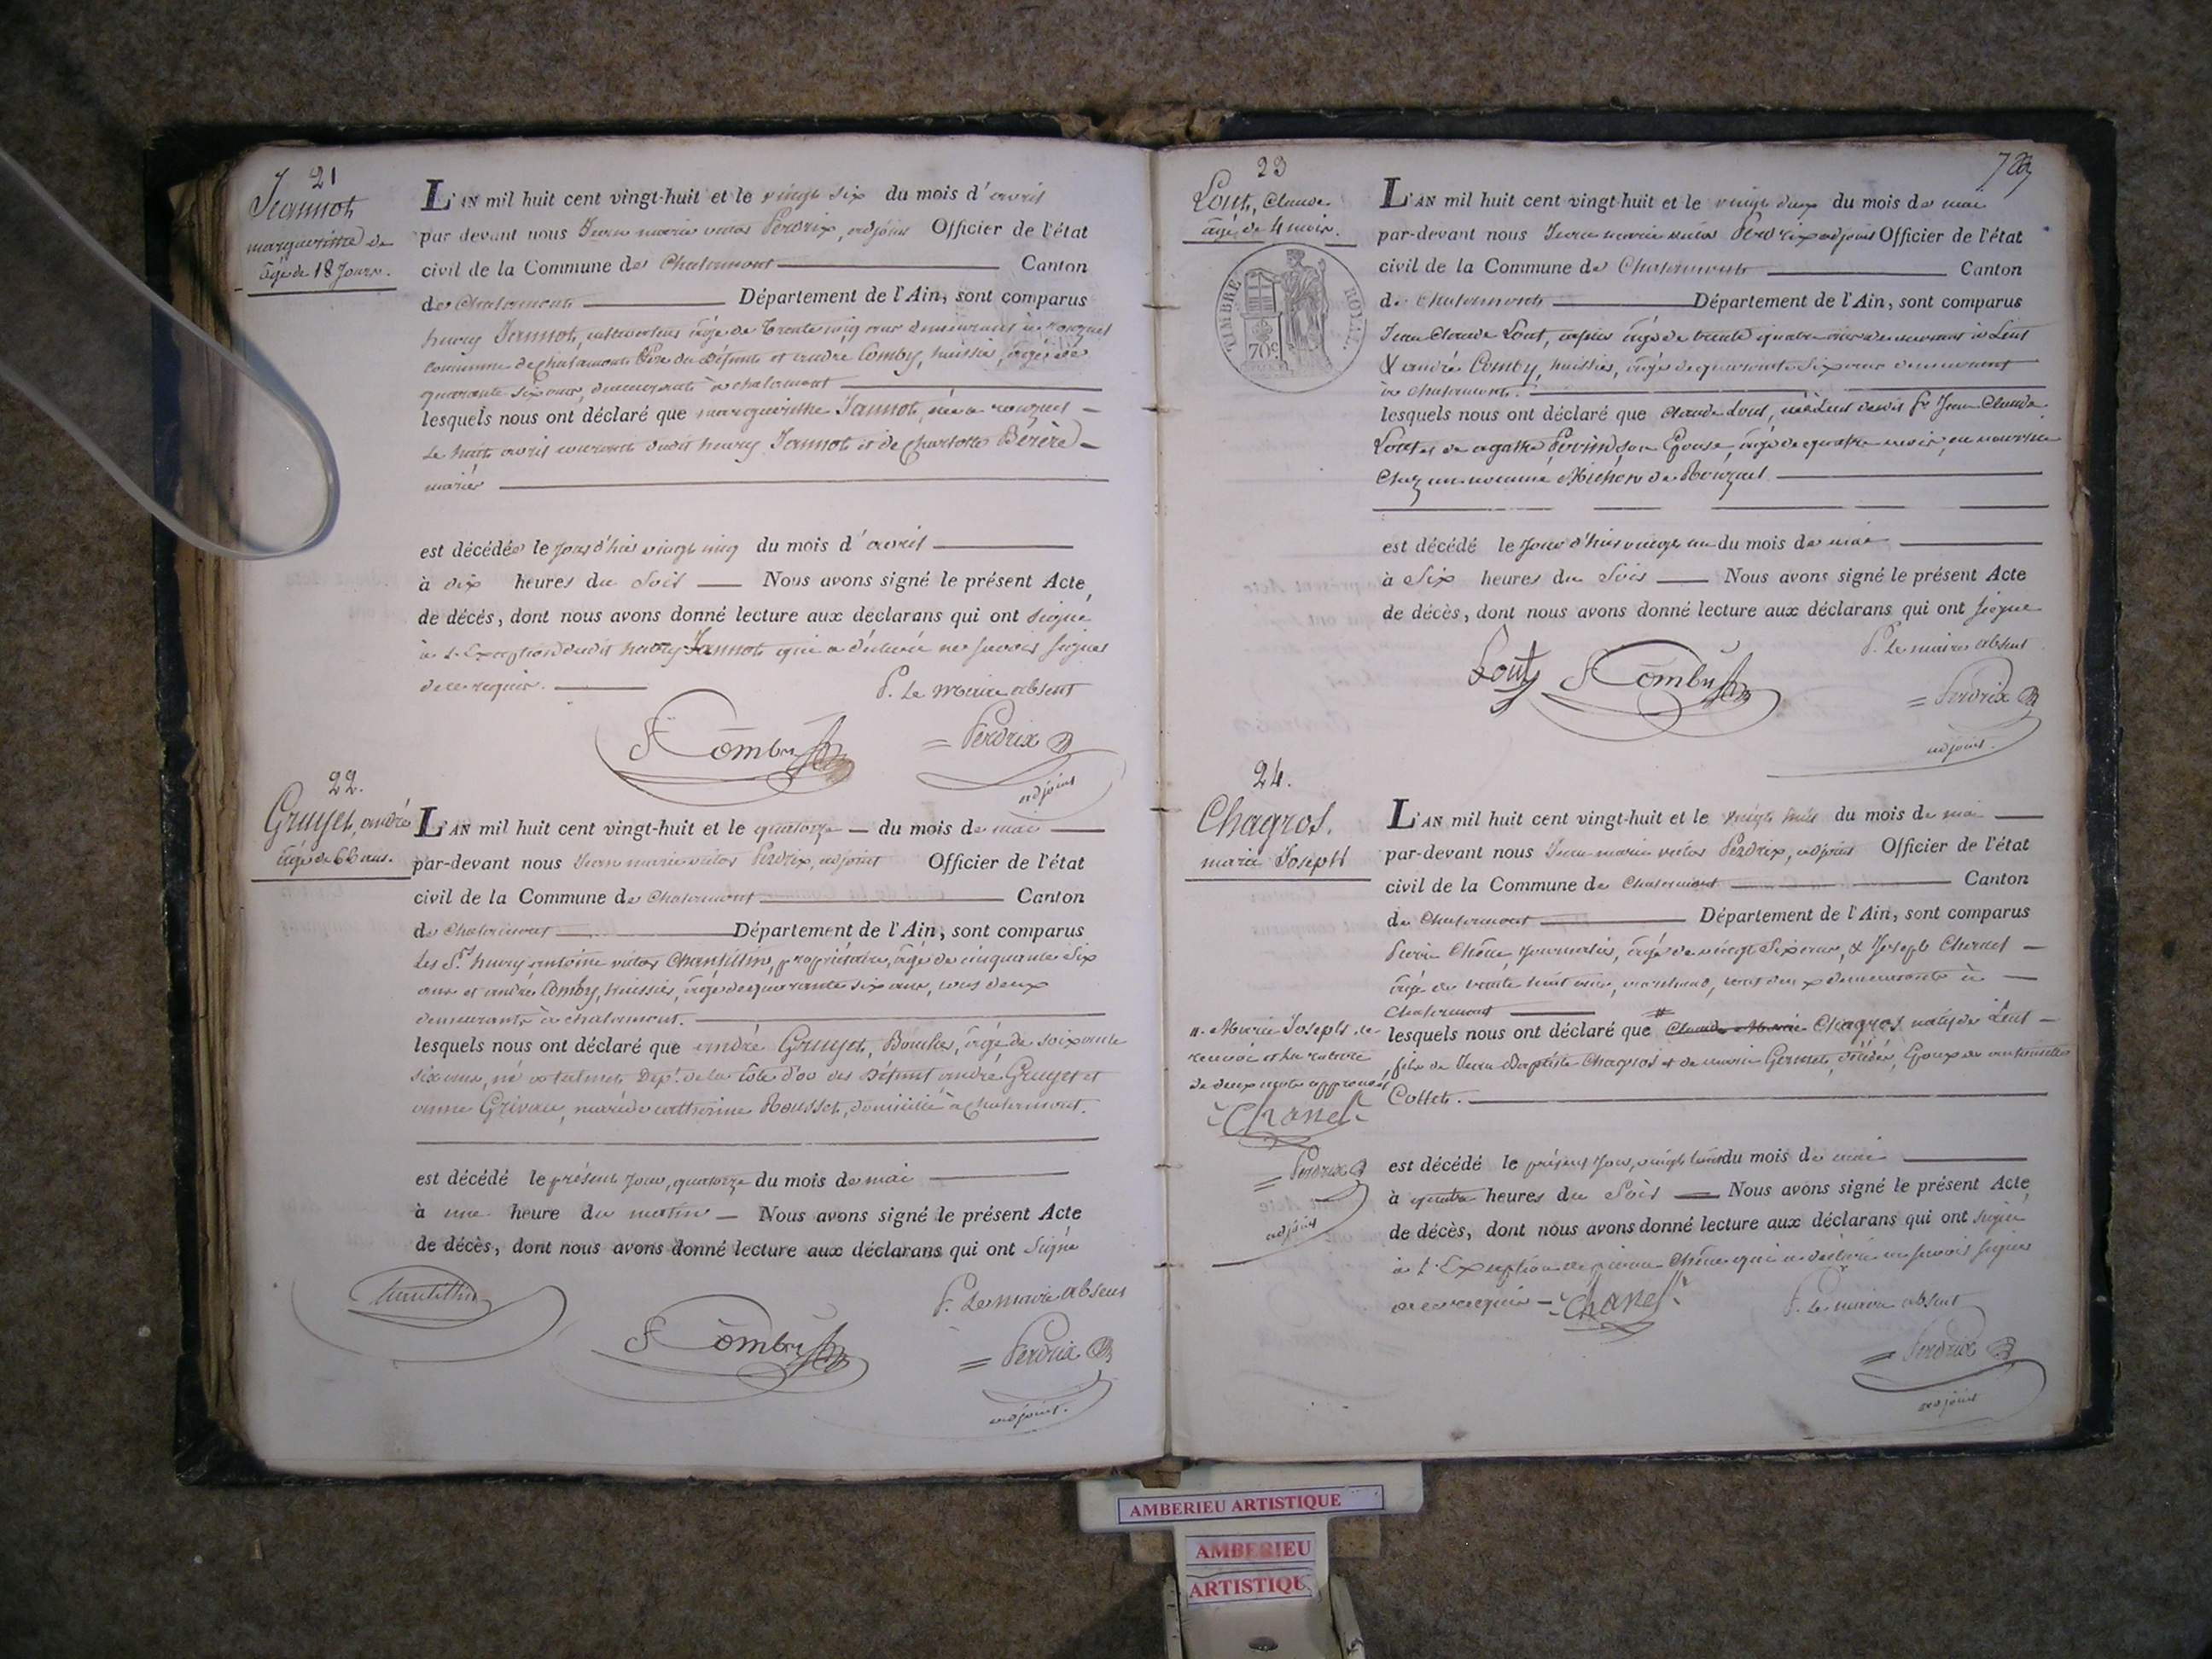 21
Jeannot
margueritte de
âgé de 18 Jours.
L'AN mil huit cent vingt-huit et le vingt six du mois d'avril
par devant nous Jean marie victor Perdrix, adjoint Officier de l'état
civil de la Commune de Chalamont Canton
de Chalamont Département de l'Ain, sont comparus
henry Jannot, cultivateur âgé de trente cinq ans demeurant à rouquet
commune de chalamont Père du Défunt et andré Comby, huissier, âgé de
quarante six ans, demeurant à chalamont
lesquels nous ont déclaré que margueritte Jannot, née a rouquet
le huit avril courant dudit henry Jannot et de Charlotte
mariés
est décédée le Jour d'hier vingt cinq du mois d'avril
à dix heures du Soir Nous avons signé le présent Acte,
de décés, dont nous avons donné lecture aux déclarans qui ont signé
à l'Exception dudit henry Jannot qui a déclaré ne savoir signer
de ce requis.
P. Le maire absent
Comby
Perdrix
adjoint
22.
Gruyet, andré
âgé de 66 ans.
L'AN mil huit cent vingt-huit et le quatorze du mois de mai
par-devant nous Jean marie victor Perdrix, adjoint Officier de l'état
civil de la Commune de Chalamont Canton
de Chalamont Département de l'Ain, sont comparus
les Srs henry antoine victor Chantillin, propriétaire, âgé de cinquante six
ans et andré Comby, huissier, âgé de quarante six ans, tous deux
demeurants à chalamont.
lesquels nous ont déclaré que andré Gruyet, Boucher, âgé de soixante
six ans, né a talmet Dept. de la Côte d'or des Défunt andré Gruyet et
anne Grivau, marié à catherine Rousset, domicilié à Chalamont.
est décédé le présent jour, quatorze du mois de mai
à une heure du matin Nous avons signé le présent Acte
de décès, dont nous avons donné lecture aux déclarans qui ont Signé
Chantillin
P. Le maire absent
Comby
Perdrix
adjoint.
23
723
Lout, Claude
âgé de 4 mois.
TIMBRE ROYAL
70c
L'AN mil huit cent vingt-huit et le vingt deux du mois de mai
par-devant nous Jean marie victor Perdrix adjoint Officier de l'état
civil de la Commune de Chalamont Canton
de Chalamont Département de l'Ain, sont comparus
Jean Claude Lout, âgé de trente quatre ans demeurant à Lent
& andré Comby, huissier, âgé de quarante six ans demeurant
à Chalamont.
lesquels nous ont déclaré que Claude Lout, né à Lent dudit Sr Jean Claude
Lout et de agathe Perrin son Epouse, âgé de quatre mois, en nourrice
Chez un nommé Michon de Rouquet
est décédé le Jour d'hier vingt un du mois de mai
à Six heures du Soir Nous avons signé le présent Acte
de décès, dont nous avons donné lecture aux déclarans qui ont signé
P. Le maire absent
Lout Comby
Perdrix
adjoint.
24.
Chagros.
marie Joseph
L'AN mil huit cent vingt-huit et le vingt huit du mois de mai
par-devant nous Jean marie victor Perdrix, adjoint Officier de l'état
civil de la Commune de Chalamont Canton
de Chalamont Département de l'Ain, sont comparus
Pierre Chêne journalier, âgé de vingt six ans, & Joseph Chanel
âgé de trente huit ans, marchand, tous deux demeurants à
Chalamont
lesquels nous ont déclaré que # Claude Marie Chagros natif de Lent
fils de Jean Baptiste Chagros et de marie Gernet, décédés, Epoux de antoinette
Collet.
#. Marie Joseph le
renvoi et la rature
de deux mots approuvés
Chanel
Perdrix
adjoint
est décédé le présent Jour, vingt huit du mois de mai
à quatre heures du Soir Nous avons signé le présent Acte
de décès, dont nous avons donné lecture aux déclarans qui ont signé
à l'Exception de pierre Chêne qui a déclaré ne savoir signer
de ce requis Chanel
P. Le maire absent
Perdrix
adjoint
AMBERIEU ARTISTIQUE
AMBERIEU
ARTISTIQU